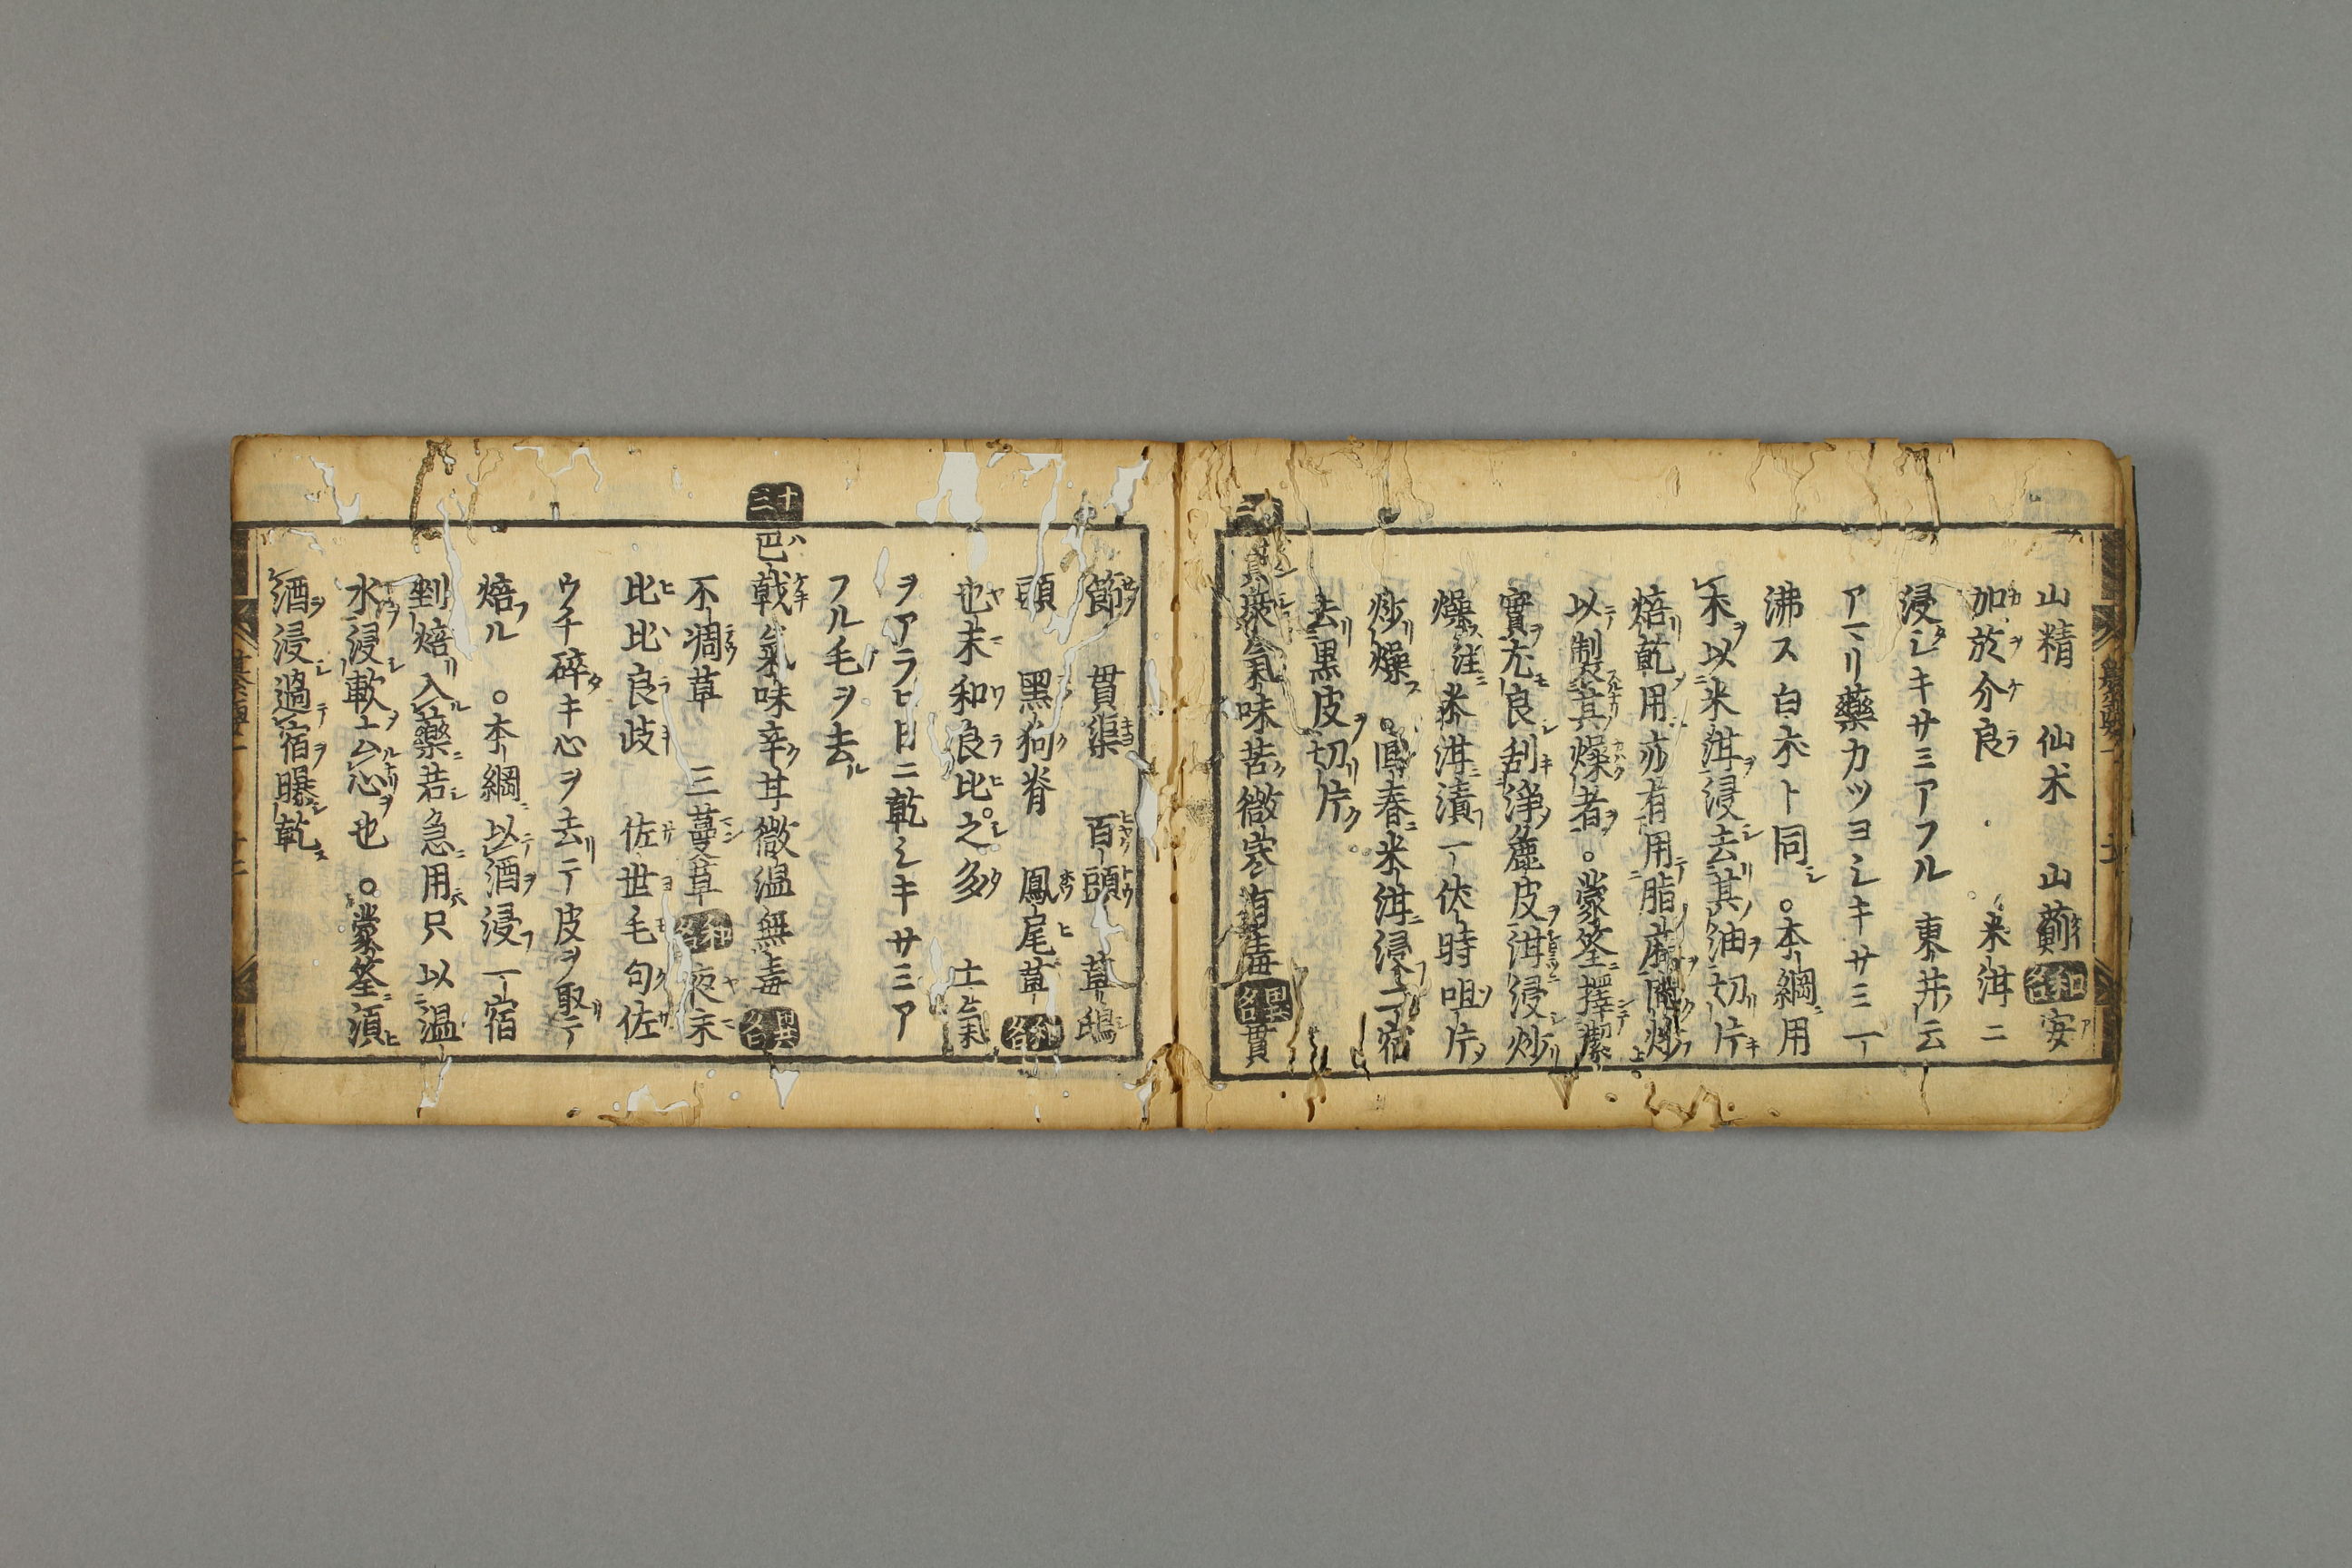 山精 仙术 山薊 和名 安
加於介良 米泔ニ
浸シキサミアフル 東井云
アマリ藥カツヨシキサミ一
沸ス白朮ト同 。本綱用
朮以米泔浸去其油切片
焙乾用亦有用脂麻同炒
以製其燥者。蒙筌擇潔
實尤良刮淨麁皮泔浸炒
燥 米泔漬一伏時咀片
炒燥 。回春米泔浸二宿
去黒皮切片
貫衆氣味苦微寒有毒 異名 貫
節 貫渠 百頭 草鴟
頭 黑狗脊 鳳尾草 和名
也末和良比之多 土氣
ヲアラヒ日ニ乾シキサミア
フル毛ヲ去
十三 巴戟氣味辛甘微温無毒 異名
不凋草 三蔓草 和名 夜末
比比良岐 佐世毛句佐
ウチ碎キ心ヲ去テ皮ヲ取テ
焙ル 。本綱以酒浸一宿
剉焙入藥若急用只以温
水浸軟去心也 。蒙筌須
酒浸過宿曝乾